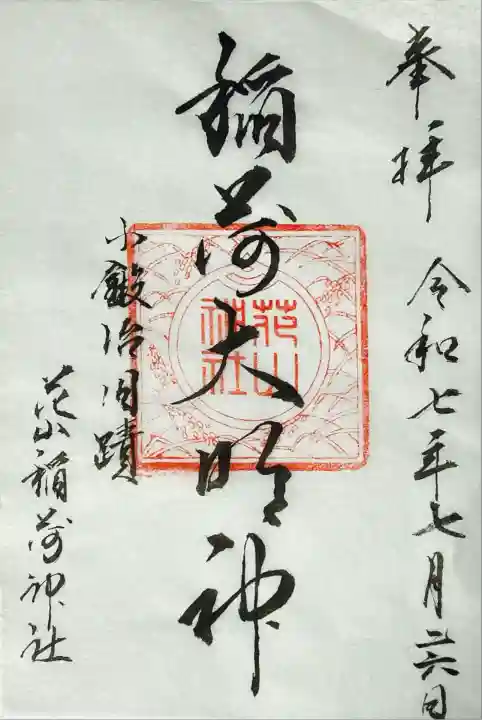 奉拝 令和七年七月二六日
稲荷大明神
花山神社
小鍛冶旧蹟
花山稲荷神社